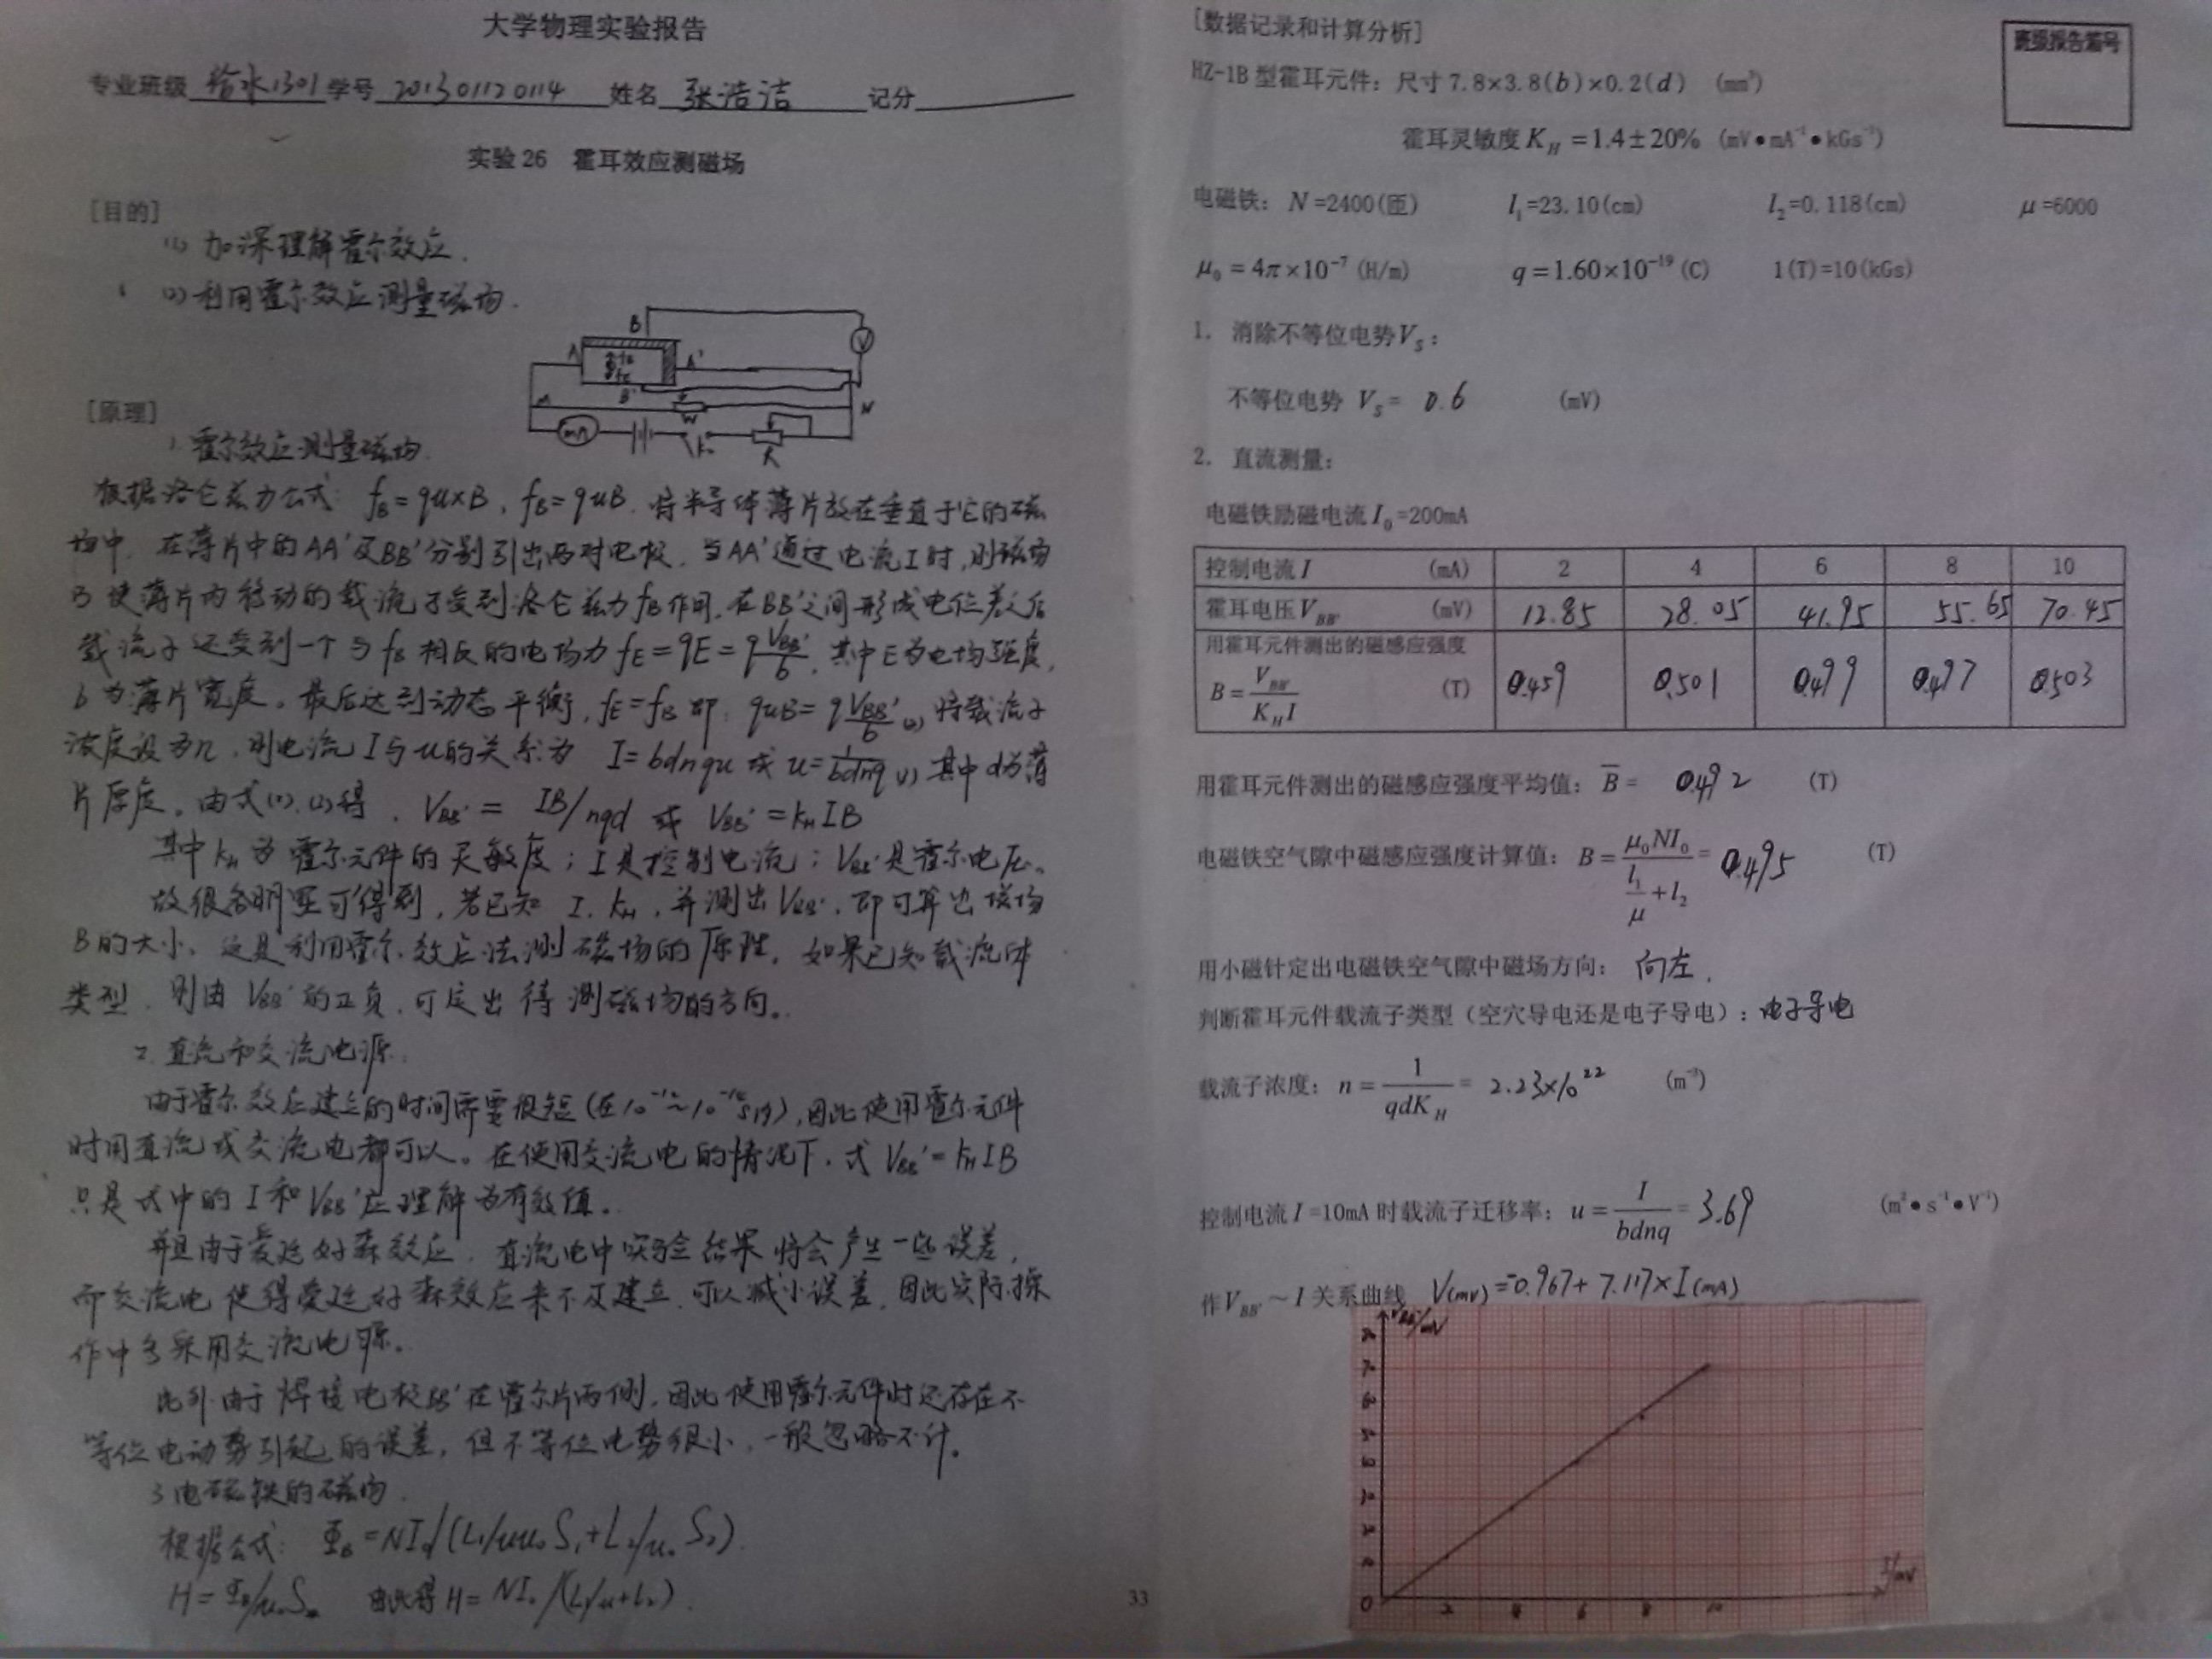 大学物理实验报告
专业班级 给水1301 学号 201301120114 姓名 张浩洁 记分
实验26 霍耳效应测磁场
[目的]
(1) 加深理解霍尔效应.
(2) 利用霍尔效应测量磁场.
B
A A'
fB
fE
B'
V
M W N
mA K R
[原理]
1. 霍尔效应测量磁场.
根据洛仑兹力公式: fB=qu×B, fB=quB. 将半导体薄片放在垂直于它的磁
场中. 在薄片中的AA'及BB'分别引出两对电极. 当AA'通过电流I时,则磁场
B使薄片内移动的载流子受到洛仑兹力fB作用.在BB'之间形成电位差后
载流子还受到一个与fB相反的电场力 fE=qE=q VBB'/b. 其中E为电场强度,
b为薄片宽度。最后达到动态平衡, fE=fB 即: quB=q VBB'/b (2) 将载流子
浓度设为n, 则电流I与u的关系为 I=bdnqu 或 u=I/bdnq (1) 其中d为薄
片厚度。由式(1).(2)得. VBB'= IB/nqd 或 VBB'=kHIB
其中kH为霍尔元件的灵敏度;I是控制电流;VBB'是霍尔电压。
故很容明显可得到, 若已知 I. kH, 并测出VBB', 即可算出磁场
B的大小、这是利用霍尔效应法测磁场的原理. 如果已知载流体
类型, 则由VBB'的正负, 可定出待测磁场的方向。
2. 直流和交流电源.
由于霍尔效应建立的时间需要很短(在10⁻¹²~10⁻¹⁴s内),因此使用霍尔元件
时用直流或交流电都可以。在使用交流电的情况下. 式VBB'=kHIB
只是式中的I和VBB'应理解为有效值。
并且由于爱廷好森效应. 直流电中实验结果将会产生一些误差,
而交流电使得爱廷好森效应来不及建立, 可以减小误差, 因此实际操
作中多采用交流电源。
此外由于焊接电极BB'在霍尔片两侧,因此使用霍尔元件时还存在不
等位电动势引起的误差, 但不等位电势很小, 一般忽略不计。
3 电磁铁的磁场.
根据公式: ΦB=NI0/(L1/μμ0S1+L2/μ0S2).
H=ΦB/μ0S2 由此得H= NI0/(L1/μ+L2).
33
[数据记录和计算分析]
班级报告编号
HZ-1B型霍耳元件: 尺寸7.8×3.8(b)×0.2(d) (mm³)
霍耳灵敏度K_H=1.4±20% (mV•mA⁻¹•kGs⁻¹)
电磁铁: N=2400(匝) l₁=23.10(cm) l₂=0.118(cm) μ=6000
μ₀=4π×10⁻⁷(H/m) q=1.60×10⁻¹⁹(C) 1(T)=10(kGs)
1. 消除不等位电势V_S:
不等位电势 V_S= 0.6 (mV)
2. 直流测量:
电磁铁励磁电流I₀=200mA
控制电流I (mA) 2 4 6 8 10
霍耳电压V_BB' (mV) 12.85 28.05 41.95 55.65 70.45
用霍耳元件测出的磁感应强度
B=V_BB'/K_H I (T) 0.459 0.501 0.499 0.497 0.503
用霍耳元件测出的磁感应强度平均值: B̄= 0.492 (T)
电磁铁空气隙中磁感应强度计算值: B=μ₀NI₀/(l₁/μ+l₂)= 0.495 (T)
用小磁针定出电磁铁空气隙中磁场方向: 向左.
判断霍耳元件载流子类型(空穴导电还是电子导电): 电子导电
载流子浓度: n=1/qdK_H= 2.23×10²² (m⁻³)
控制电流I=10mA时载流子迁移率: u=I/bdnq= 3.69 (m²•s⁻¹•V⁻¹)
作V_BB'~I关系曲线 V(mV)=-0.967+7.117×I(mA)
VBB'/mV
I/mV
0 2 4 6 8 10